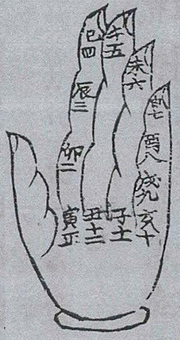 巳四
午五
未六
申七
辰三
酉八
卯二
戌九
寅正
丑十二
子十一
亥十